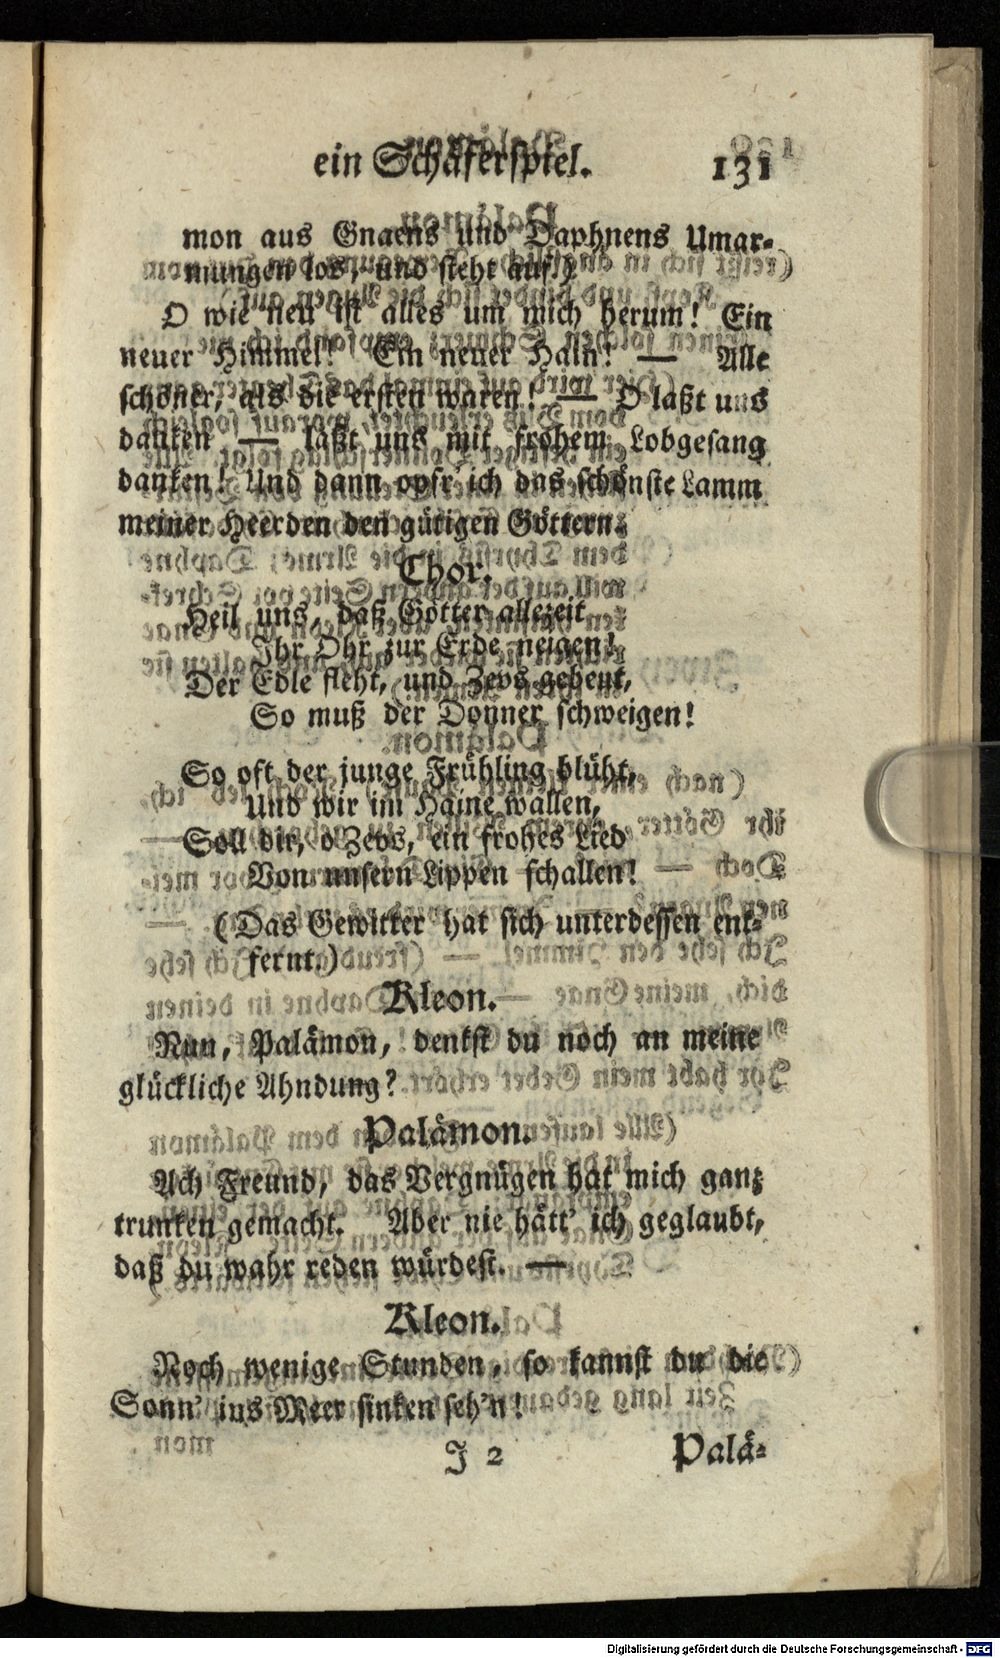 ein Schäferspiel. 131
mon aus Gnaens und Daphnens Umar-
mungen los, und steht auf.)
O wie neu ist alles um mich herum! Ein
neuer Himmel! Ein neuer Hain! — Alle
schöner, als die ersten waren! — O laßt uns
danken — laßt uns mit frohem Lobgesang
danken! Und dann opfr' ich das schönste Lamm
meiner Heerden den gütigen Göttern.
Chor.
Heil uns, daß Götter allezeit
Ihr Ohr zur Erde neigen!
Der Edle fleht, und Zevs gebeut,
So muß der Donner schweigen!
So oft der junge Frühling blüht,
Und wir im Haine wallen,
Soll dir, o Zevs, ein frohes Lied
Von unsern Lippen schallen!
(Das Gewitter hat sich unterdessen ent-
fernt.)
Kleon.
Nun, Palämon, denkst du noch an meine
glückliche Ahndung?
Palämon.
Ach Freund, das Vergnügen hat mich ganz
trunken gemacht. Aber nie hätt' ich geglaubt,
daß du wahr reden würdest. —
Kleon.
Noch wenige Stunden, so kannst du die
Sonn' ins Meer sinken seh'n!
J 2 Palä-
Digitalisierung gefördert durch die Deutsche Forschungsgemeinschaft - DFG